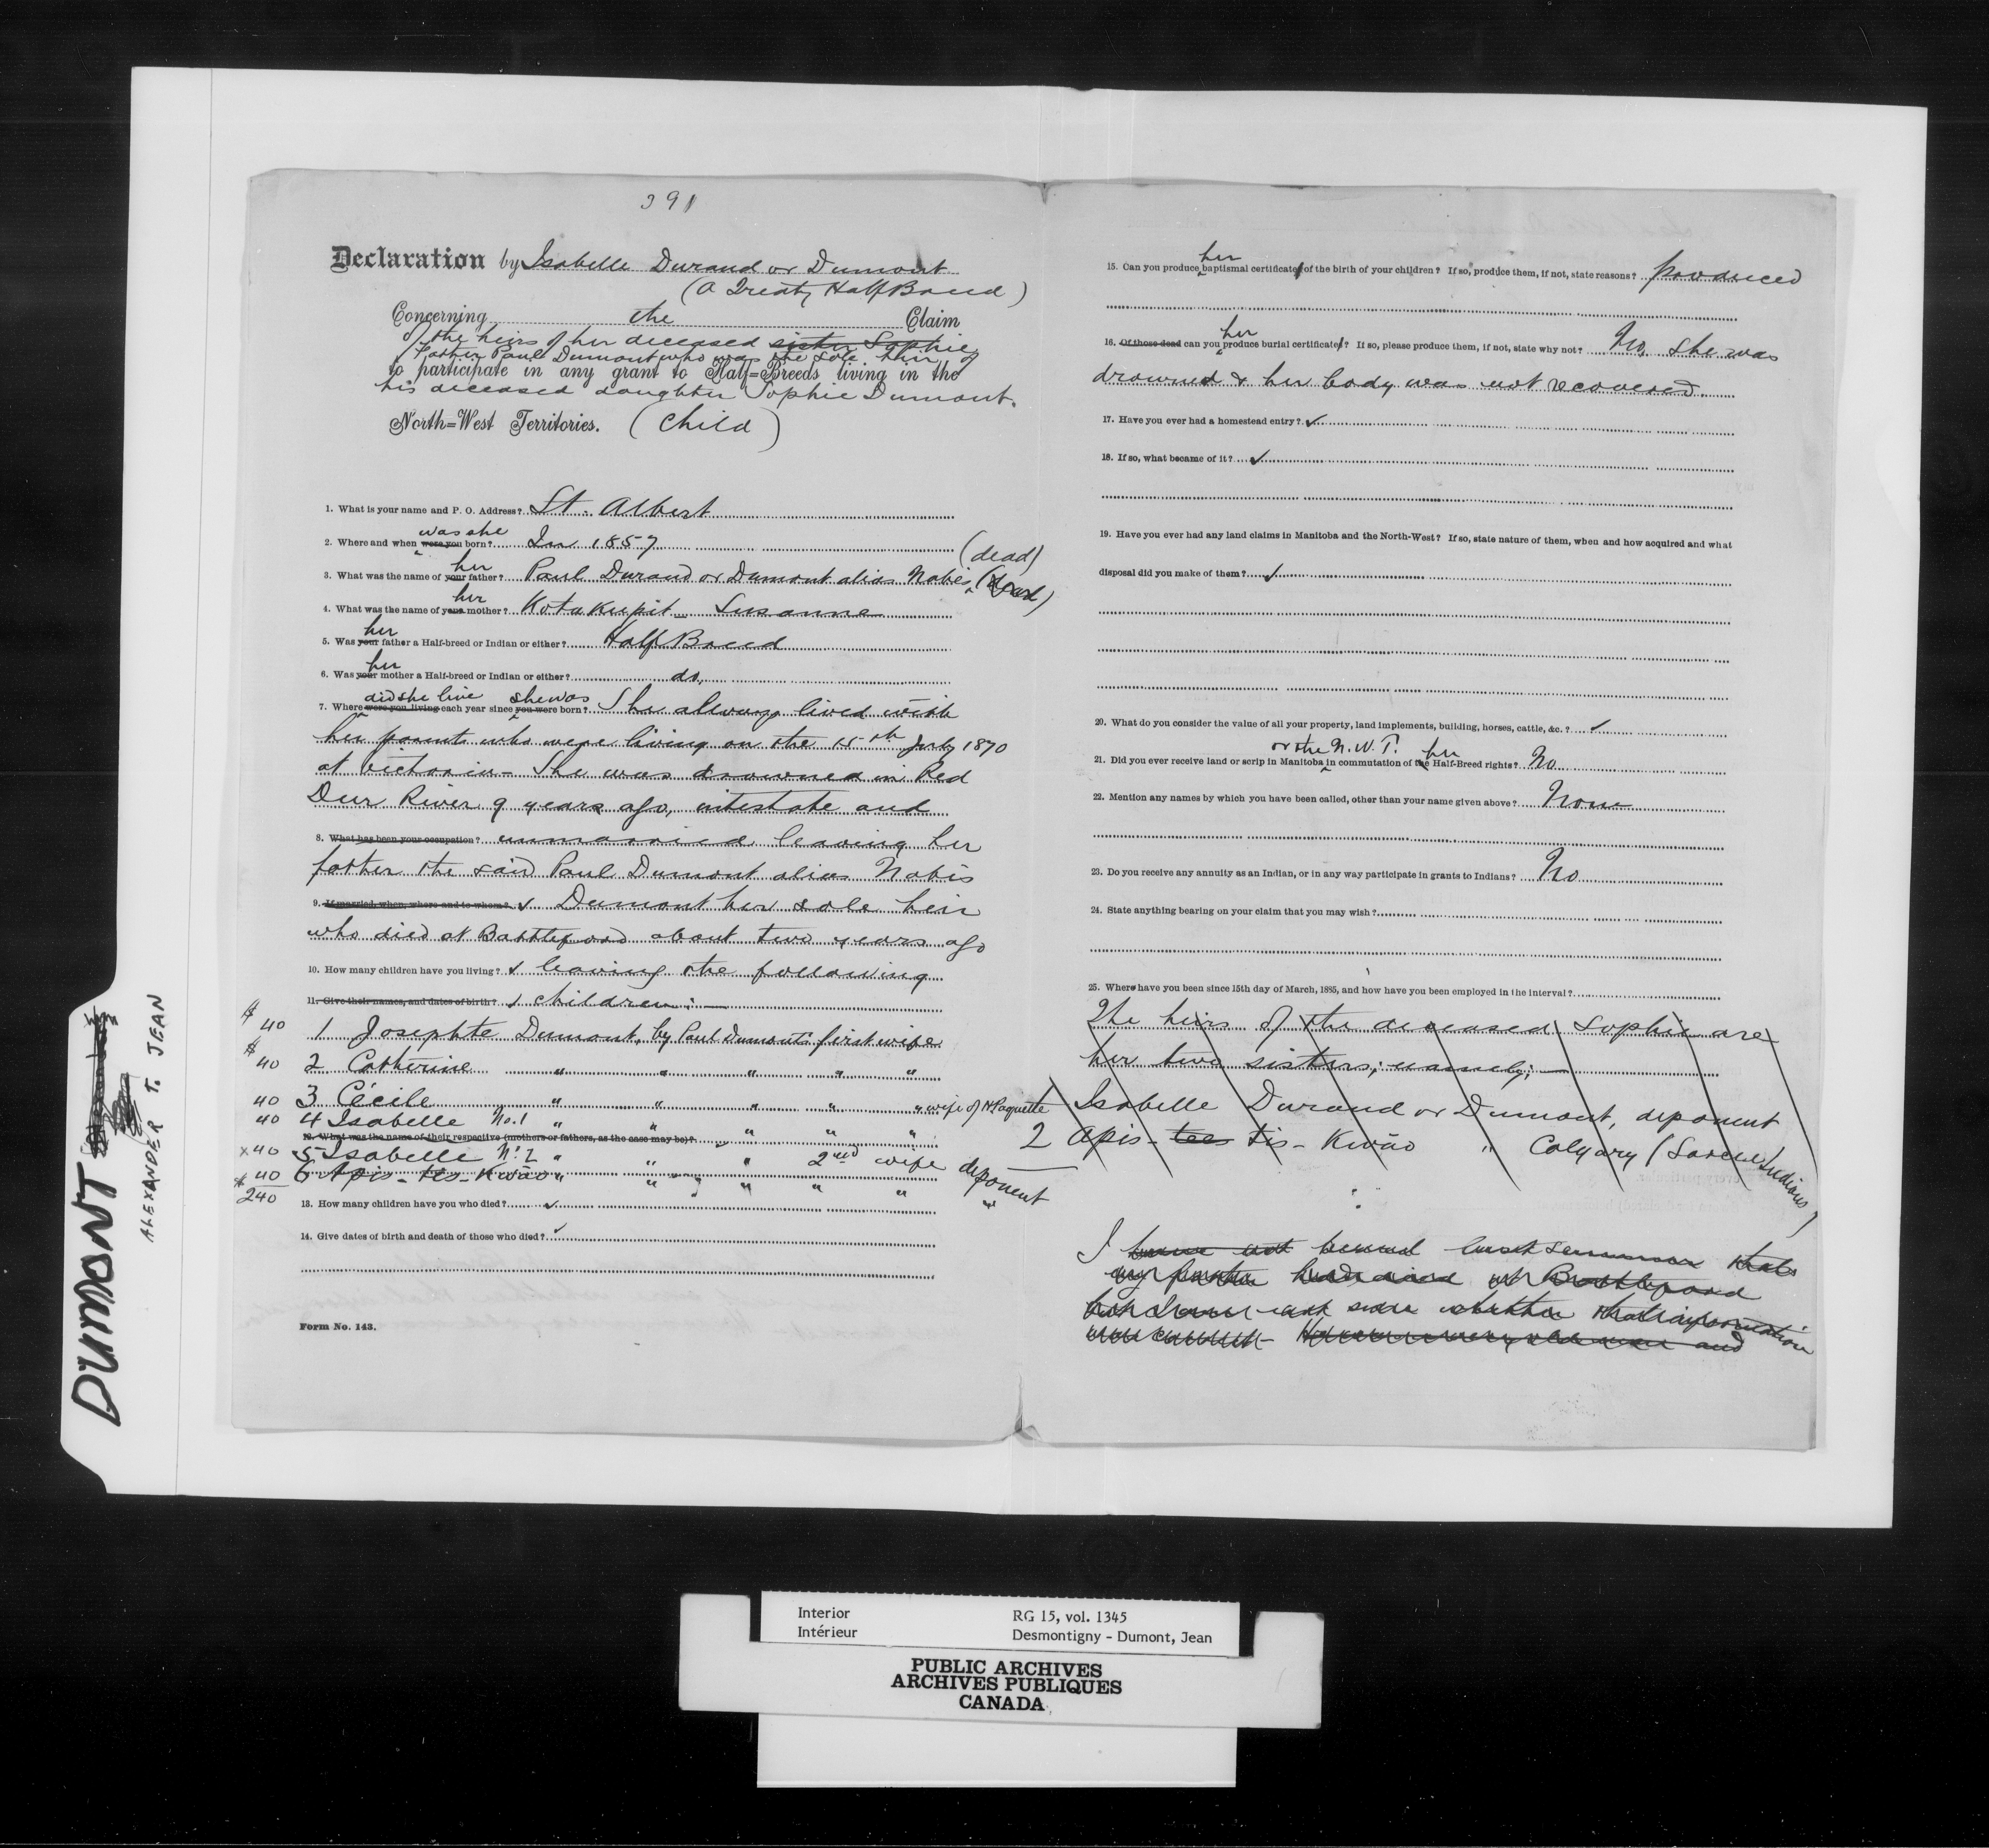 391
Declaration by Isabelle Durand or Dumont
(A Treaty Half Breed)
Concerning the Claim
of the heirs of her deceased sister Sophie
Father Paul Dumont who was the sole heir of
to participate in any grant to Half=Breeds living in the
his deceased daughter Sophie Dumont.
North=West Territories. (Child)
1. What is your name and P. O. Address? St. Albert
was she
2. Where and when were you born? In 1857
(dead)
her
3. What was the name of your father? Paul Durand or Dumont alias Nabis (dead)
her
4. What was the name of your mother? Kotakupit Susanne
her
5. Was your father a Half-breed or Indian or either? Half Breed
her
6. Was your mother a Half-breed or Indian or either? do.
did she live she was
7. Where were you living each year since you were born? She always lived with
her parents who were living on the 15th July 1870
at Victoria - She was drowned in Red
Deer River 9 years ago, intestate and
8. What has been your occupation? unmarried leaving her
father the said Paul Dumont alias Nabis
9. If married, when, where and to whom? Dumont her sole heir
who died at Battleford about two years ago
10. How many children have you living? leaving the following
11. Give their names, and dates of birth? children:—
$40 1 Josephte Dumont, by Paul Dumont's first wife
$40 2 Catherine " " " " "
40 3 Cécile " " " " " wife of N Paquette
40 4 Isabelle No. 1 " " " " "
12. What was the name of their respective (mothers or fathers, as the case may be)?
x40 5 Isabelle No. 2 " " " 2nd wife deponent
$40 6 Apis-tis-Kwāo " " " " "
240
13. How many children have you who died?
14. Give dates of birth and death of those who died?
Form No. 143.
her
15. Can you produce baptismal certificate of the birth of your children? If so, produce them, if not, state reasons? produced
her
16. Of those dead can you produce burial certificates? If so, please produce them, if not, state why not? No, she was
drowned & her body was not recovered.
17. Have you ever had a homestead entry?
18. If so, what became of it?
19. Have you ever had any land claims in Manitoba and the North-West? If so, state nature of them, when and how acquired and what
disposal did you make of them?
20. What do you consider the value of all your property, land implements, building, horses, cattle, &c.?
or the N.W.T. her
21. Did you ever receive land or scrip in Manitoba in commutation of the Half-Breed rights? No
22. Mention any names by which you have been called, other than your name given above? None
23. Do you receive any annuity as an Indian, or in any way participate in grants to Indians? No
24. State anything bearing on your claim that you may wish?
25. Where have you been since 15th day of March, 1885, and how have you been employed in the interval?
The heirs of the deceased Sophie are
her two sisters; namely;—
1 Isabelle Durand or Dumont, deponent
2 Apis-tees tis-Kwāo " Calgary (Sarcee Indians)
I have not heard last summer that
my father had died at Battleford
but I am not sure whether that information
was correct - He was a very old man and
DUMONT
ALEXANDER T. JEAN
Interior RG 15, vol. 1345
Intérieur Desmontigny - Dumont, Jean
PUBLIC ARCHIVES
ARCHIVES PUBLIQUES
CANADA